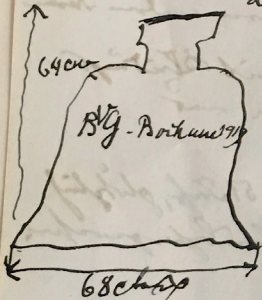 64 cm
BVG-Bochum 1919
68 cm